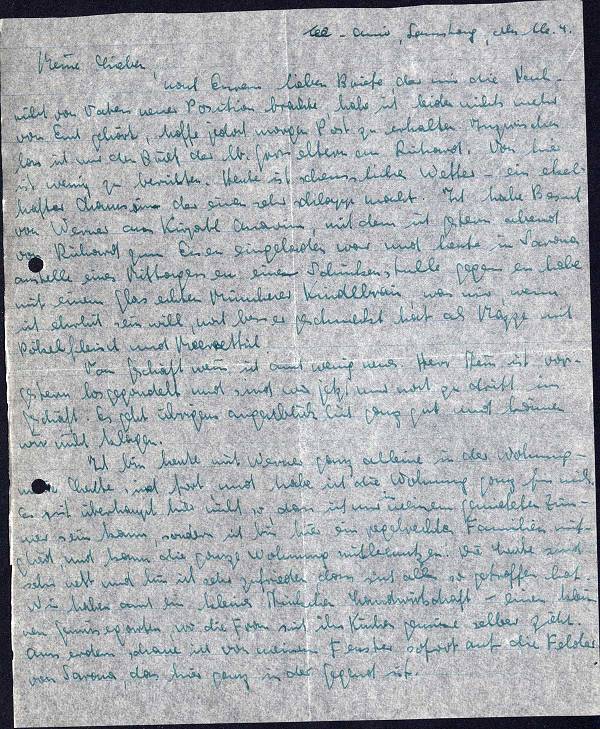 Tel-Aviv, Samstag, den 16.4.
Meine Lieben,
nach Eurem lieben Briefe der mir die Nach-
richt von Vaters neuer Position brachte habe ich leider nichts mehr
von Euch gehört, hoffe jedoch morgen Post zu erhalten. Inzwischen
las ich nur den Brief der lb. Grosseltern an Richard. Von hier
ist wenig zu berichten. Heute ist scheussliches Wetter – ein ekel-
hafter Chamsin der einen sehr schlapp macht. Ich habe Besuch
von Werner aus Kirjath Anavim, mit dem ich gestern abend
von Richard zum Essen eingeladen war und heute in Sarona
anstelle eines Mittagessens eine Schinkenstulle gegessen habe
mit einem Glas echten Münchener Kindlbräu, was mir, wenn
ich ehrlich sein will, viel besser geschmeckt hat als Mazze mit
Pökelfleisch und Meerrettich.
Vom Geschäft weiss ich auch wenig neues. Herr ist vor-
gestern losgegondelt und sind wir jetzt nur noch zu dritt im
Geschäft. Es geht übrigens augenblicklich ganz gut und können
wir nicht klagen.
Ich bin heute mit Werner ganz alleine in der Wohnung –
meine Leute sind fort und habe ich die Wohnung ganz für mich.
Es ist überhaupt hier nicht so dass ich nur in meinem gemieteten Zim-
mer sein kann, sondern ich bin hier ein regelrechtes Familienmit-
glied und kann die ganze Wohnung mitbenutzen. Die Leute sind
sehr nett und bin ich sehr zufrieden dass sich alles so getroffen hat.
Wir haben auch ein kleines Landwirtschaft – einen klei-
nen Gemüsegarten, wo die Frau sich ihr Küchengemüse selber zieht.
Ausserdem schaue ich von meinem Fenster sofort auf die Felder
von Sarona das hier ganz in der Gegend ist.